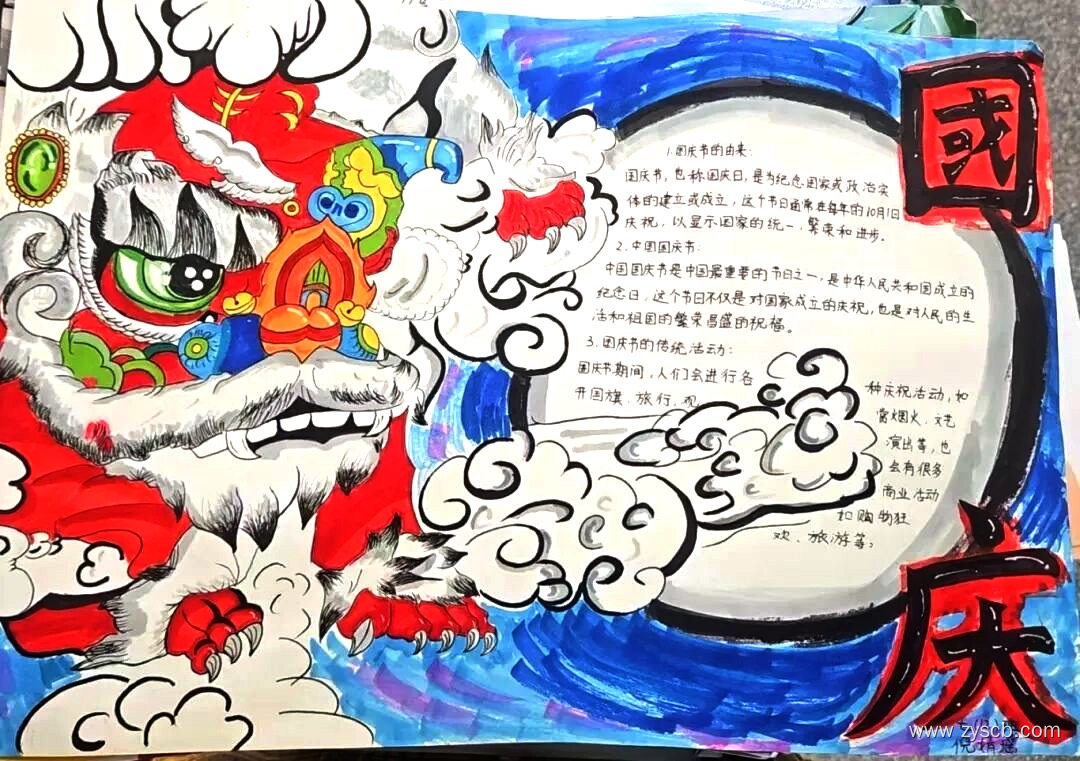 國
庆
1.国庆节的由来:
国庆节,也称国庆日,是为纪念国家或政治实
体的建立或成立,这个节日通常在每年的10月1日
庆祝,以显示国家的统一,繁荣和进步。
2.中国国庆节:
中国国庆节是中国最重要的节日之一,是中华人民共和国成立的
纪念日,这个节日不仅是对国家成立的庆祝,也是对人民的生
活和祖国的繁荣昌盛的祝福。
3.国庆节的传统活动:
国庆节期间,人们会进行各
种庆祝活动,如
开国旗、旅行、观
富烟火,文艺
演出等,也
会有很多
商业活动
如购物狂
欢、旅游等,
www.zyscb.com